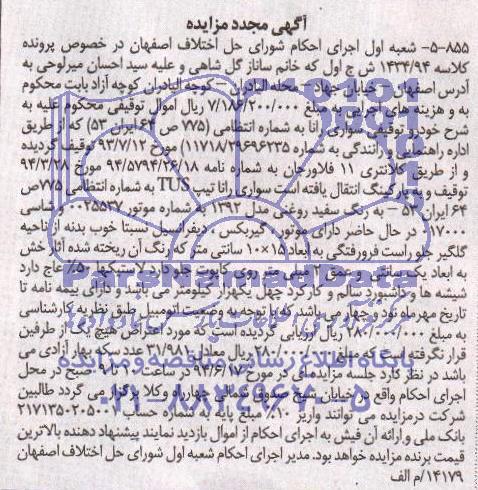 آگهی مجدد مزایده
۵-۸۵۵- شعبه اول اجرای احکام شورای حل اختلاف اصفهان در خصوص پرونده
کلاسه ۱۴۳۴/۹۴ ش ح اول که خانم ساناز گل شاهی و علیه سید احسان میرلوحی به
آدرس اصفهان - خیابان جهاد - محله الیادران - کوچه الیادران کوچه آزاد بابت محکوم
به و هزینه های اجرایی به مبلغ ۷/۱۸۶/۲۰۰/۰۰۰ ریال اموال توقیفی محکوم علیه به
شرح خودرو توقیفی سواری رانا به شماره انتظامی (۷۷۵ ص ۶۴ ایران ۵۳) که از طریق
اداره راهنمایی و رانندگی به شماره (۱۱۷۱۸/۲۹۶۹۶۲۳۵ مورخ ۹۳/۷/۱۲ توقیف گردیده
و از طریق کلانتری ۱۱ فلاورجان به شماره نامه ۹۴/۵۷۹۴/۲۶/۱۸ مورخ ۹۴/۳/۲۸
توقیف و به پارکینگ انتقال یافته است سواری رانا تیپ TUS به شماره انتظامی ۷۷۵ص
۶۴ ایران ۵۳ - به رنگ سفید روغنی مدل ۱۳۹۲ به شماره موتور ۰۰۲۵۵۳۷ و شاسی
۰۱۷۰۰۰ در حال حاضر دارای موتور، گیربکس، دیفرانسیل نسبتا خوب بدنه از ناحیه
گلگیر جلو راست فرورفتگی به ابعاد ۱۵×۱۰ سانتی متر رنگ آن ریخته شده آثار خش
به ابعاد یک سانتی و عمق ۲ میلی متر روی کاپوت جلو دارد لاستیکها ۵۰٪ عاج دارد
شیشه ها و داشبورد سالم و کارکرد چهل یکهزار کیلومتر می باشد و دارای بیمه نامه تا
تاریخ مهرماه نود و چهار می باشد که با توجه به وضعیت اتومبیل طبق نظریه کارشناسی
به مبلغ ۲۸۰/۰۰۰/۰۰۰ ریال ارزیابی گردیده است که مورد اعتراض هیچ یک از طرفین
قرار نگرفته است و مبلغ ریال معادل ۳۱/۹۸۱ عدد سکه بهار آزادی می
باشد در نظر دارد جلسه مزایده ای در مورخ ۹۴/۶/۱۷ ساعت صبح در محل
اجرای احکام واقع در خیابان شیخ صدوق شمالی چهارراه وکلا برگزار می گردد طالبین
شرکت درمزایده می توانند واریز ۱۰٪ مبلغ پایه به شماره حساب ۲۱۷۱۳۵۰۲۰۵۰۰۱
بانک ملی و ارائه آن فیش به اجرای احکام از اموال بازدید نمایند پیشنهاد دهنده بالاترین
قیمت برنده مزایده خواهد بود. مدیر اجرای احکام شعبه اول شورای حل اختلاف اصفهان
۱۴۱۷۹/م الف
ParsNamadData
پایگاه اطلاع رسانی مناقصه و مزایده
۰۲۱-۸۸۳۴۹۶۷۰-۵